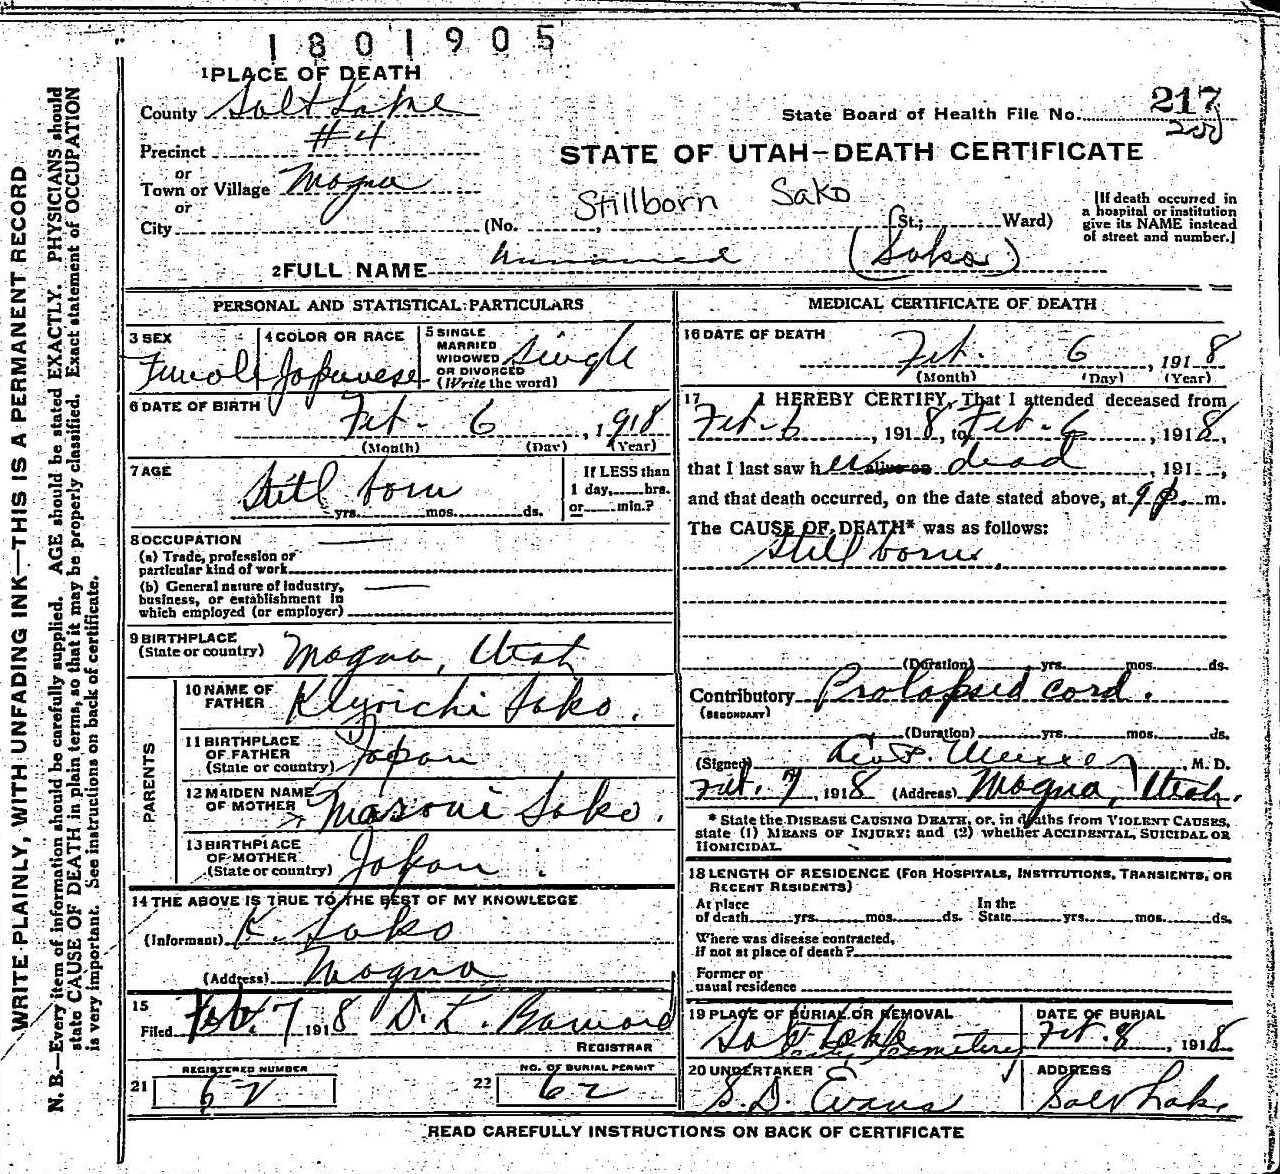 1801905
1 PLACE OF DEATH
County Salt Lake
State Board of Health File No. 217
200
Precinct #4
STATE OF UTAH—DEATH CERTIFICATE
or
Town or Village Magna
or
City
Stillborn Sako
(No. St.; Ward)
[If death occurred in
a hospital or institution
give its NAME instead
of street and number.]
2 FULL NAME unnamed (Sako)
PERSONAL AND STATISTICAL PARTICULARS
3 SEX
Female
4 COLOR OR RACE
Japanese
5 SINGLE
MARRIED
WIDOWED
OR DIVORCED
(Write the word)
Single
6 DATE OF BIRTH
Feb. 6, 1918
(Month) (Day) (Year)
7 AGE
Still born
yrs. mos. ds.
If LESS than
1 day, hrs.
or min.?
8 OCCUPATION
(a) Trade, profession or
particular kind of work
(b) General nature of industry,
business, or establishment in
which employed (or employer)
9 BIRTHPLACE
(State or country) Magna, Utah
PARENTS
10 NAME OF
FATHER Sako.
11 BIRTHPLACE
OF FATHER
(State or country) Japan
12 MAIDEN NAME
OF MOTHER Masoni Sako.
13 BIRTHPLACE
OF MOTHER
(State or country) Japan.
14 THE ABOVE IS TRUE TO THE BEST OF MY KNOWLEDGE
(Informant) K. Sako
(Address) Magna
15
Filed Feb. 7 1918 D. L.
REGISTRAR
REGISTERED NUMBER
21 62
NO. OF BURIAL PERMIT
22 62
MEDICAL CERTIFICATE OF DEATH
16 DATE OF DEATH
Feb. 6, 1918
(Month) (Day) (Year)
17 I HEREBY CERTIFY, That I attended deceased from
Feb. 6, 1918, to Feb. 6, 1918,
that I last saw her alive on dead, 191 ,
and that death occurred, on the date stated above, at 9 p. m.
The CAUSE OF DEATH* was as follows:
Still born.
(Duration) yrs. mos. ds.
Contributory Prolapsed cord.
(SECONDARY)
(Duration) yrs. mos. ds.
(Signed) M. D.
Feb. 7, 1918 (Address) Magna, Utah.
* State the DISEASE CAUSING DEATH, or, in deaths from VIOLENT CAUSES,
state (1) MEANS OF INJURY; and (2) whether ACCIDENTAL, SUICIDAL OR
HOMICIDAL.
18 LENGTH OF RESIDENCE (FOR HOSPITALS, INSTITUTIONS, TRANSIENTS, OR
RECENT RESIDENTS)
At place
of death yrs. mos. ds.
In the
State yrs. mos. ds.
Where was disease contracted,
if not at place of death?
Former or
usual residence
19 PLACE OF BURIAL OR REMOVAL
Salt Lake
City Cemetery
DATE OF BURIAL
Feb. 8, 1918
20 UNDERTAKER
S. D. Evans
ADDRESS
Salt Lake
READ CAREFULLY INSTRUCTIONS ON BACK OF CERTIFICATE
WRITE PLAINLY, WITH UNFADING INK—THIS IS A PERMANENT RECORD
N. B.—Every item of information should be carefully supplied. AGE should be stated EXACTLY. PHYSICIANS should
state CAUSE OF DEATH in plain terms, so that it may be properly classified. Exact statement of OCCUPATION
is very important. See instructions on back of certificate.